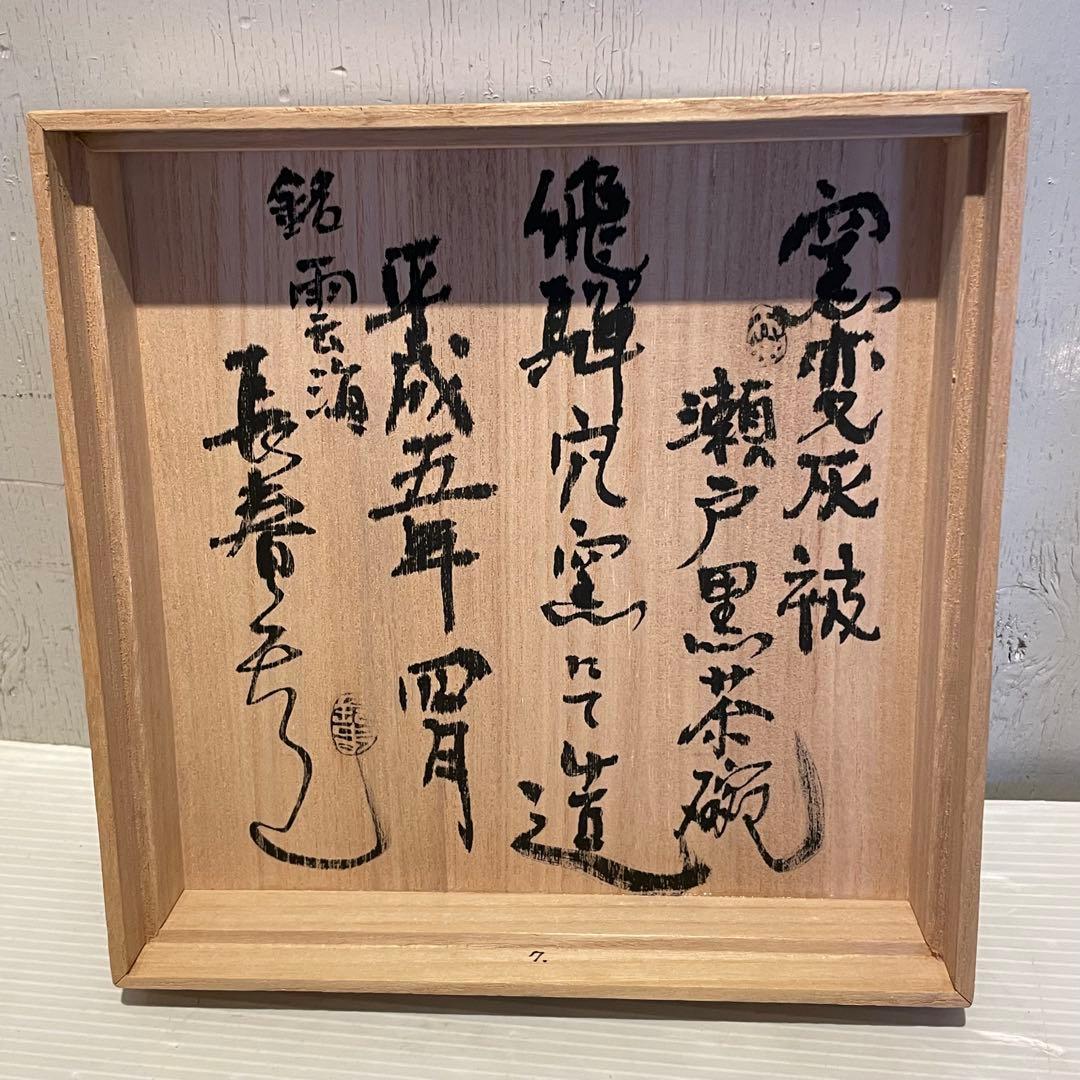 窯変灰被
瀬戸黒茶碗
飛騨穴窯にて造
平成五年四月
銘 雲海
長春
7.